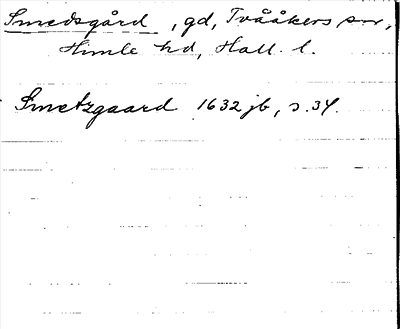 Smedsgård, gd, Tvååkers sn,
Himle hd, Hall. l.
Smetzgaard 1632 jb, s. 34.